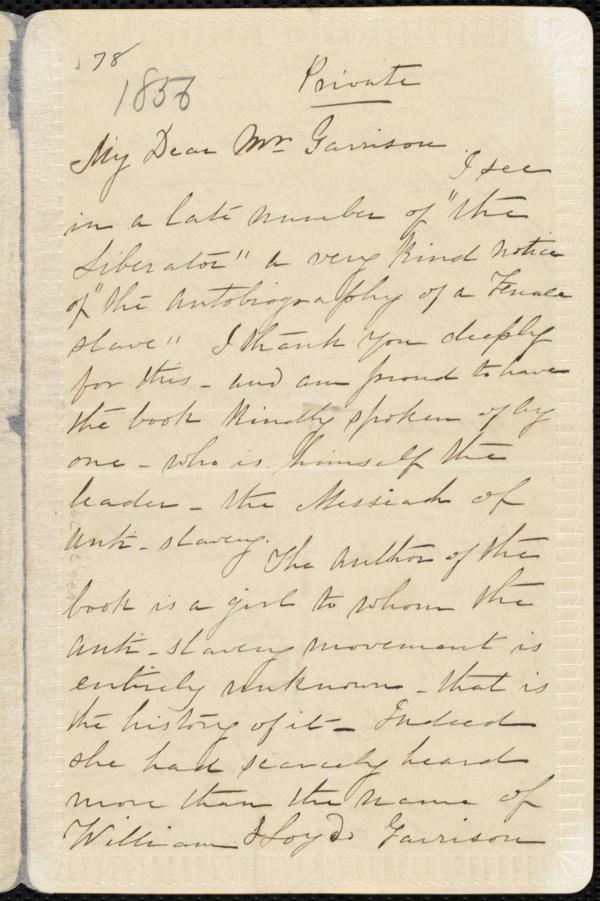 78
1856
Private
My Dear Mr Garrison
I see
in a late number of "the
Liberator" a very kind notice
of "the Autobiography of a Female
slave" I thank you deeply
for this - and am proud to have
the book kindly spoken of by
one - who is himself the
leader - the Messiah of
Anti-slavery.
The Author of the
book is a girl to whom the
Anti-slavery movement is
entirely unknown - that is
the history of it - Indeed
she had scarcely heard
more than the name of
William Lloyd Garrison